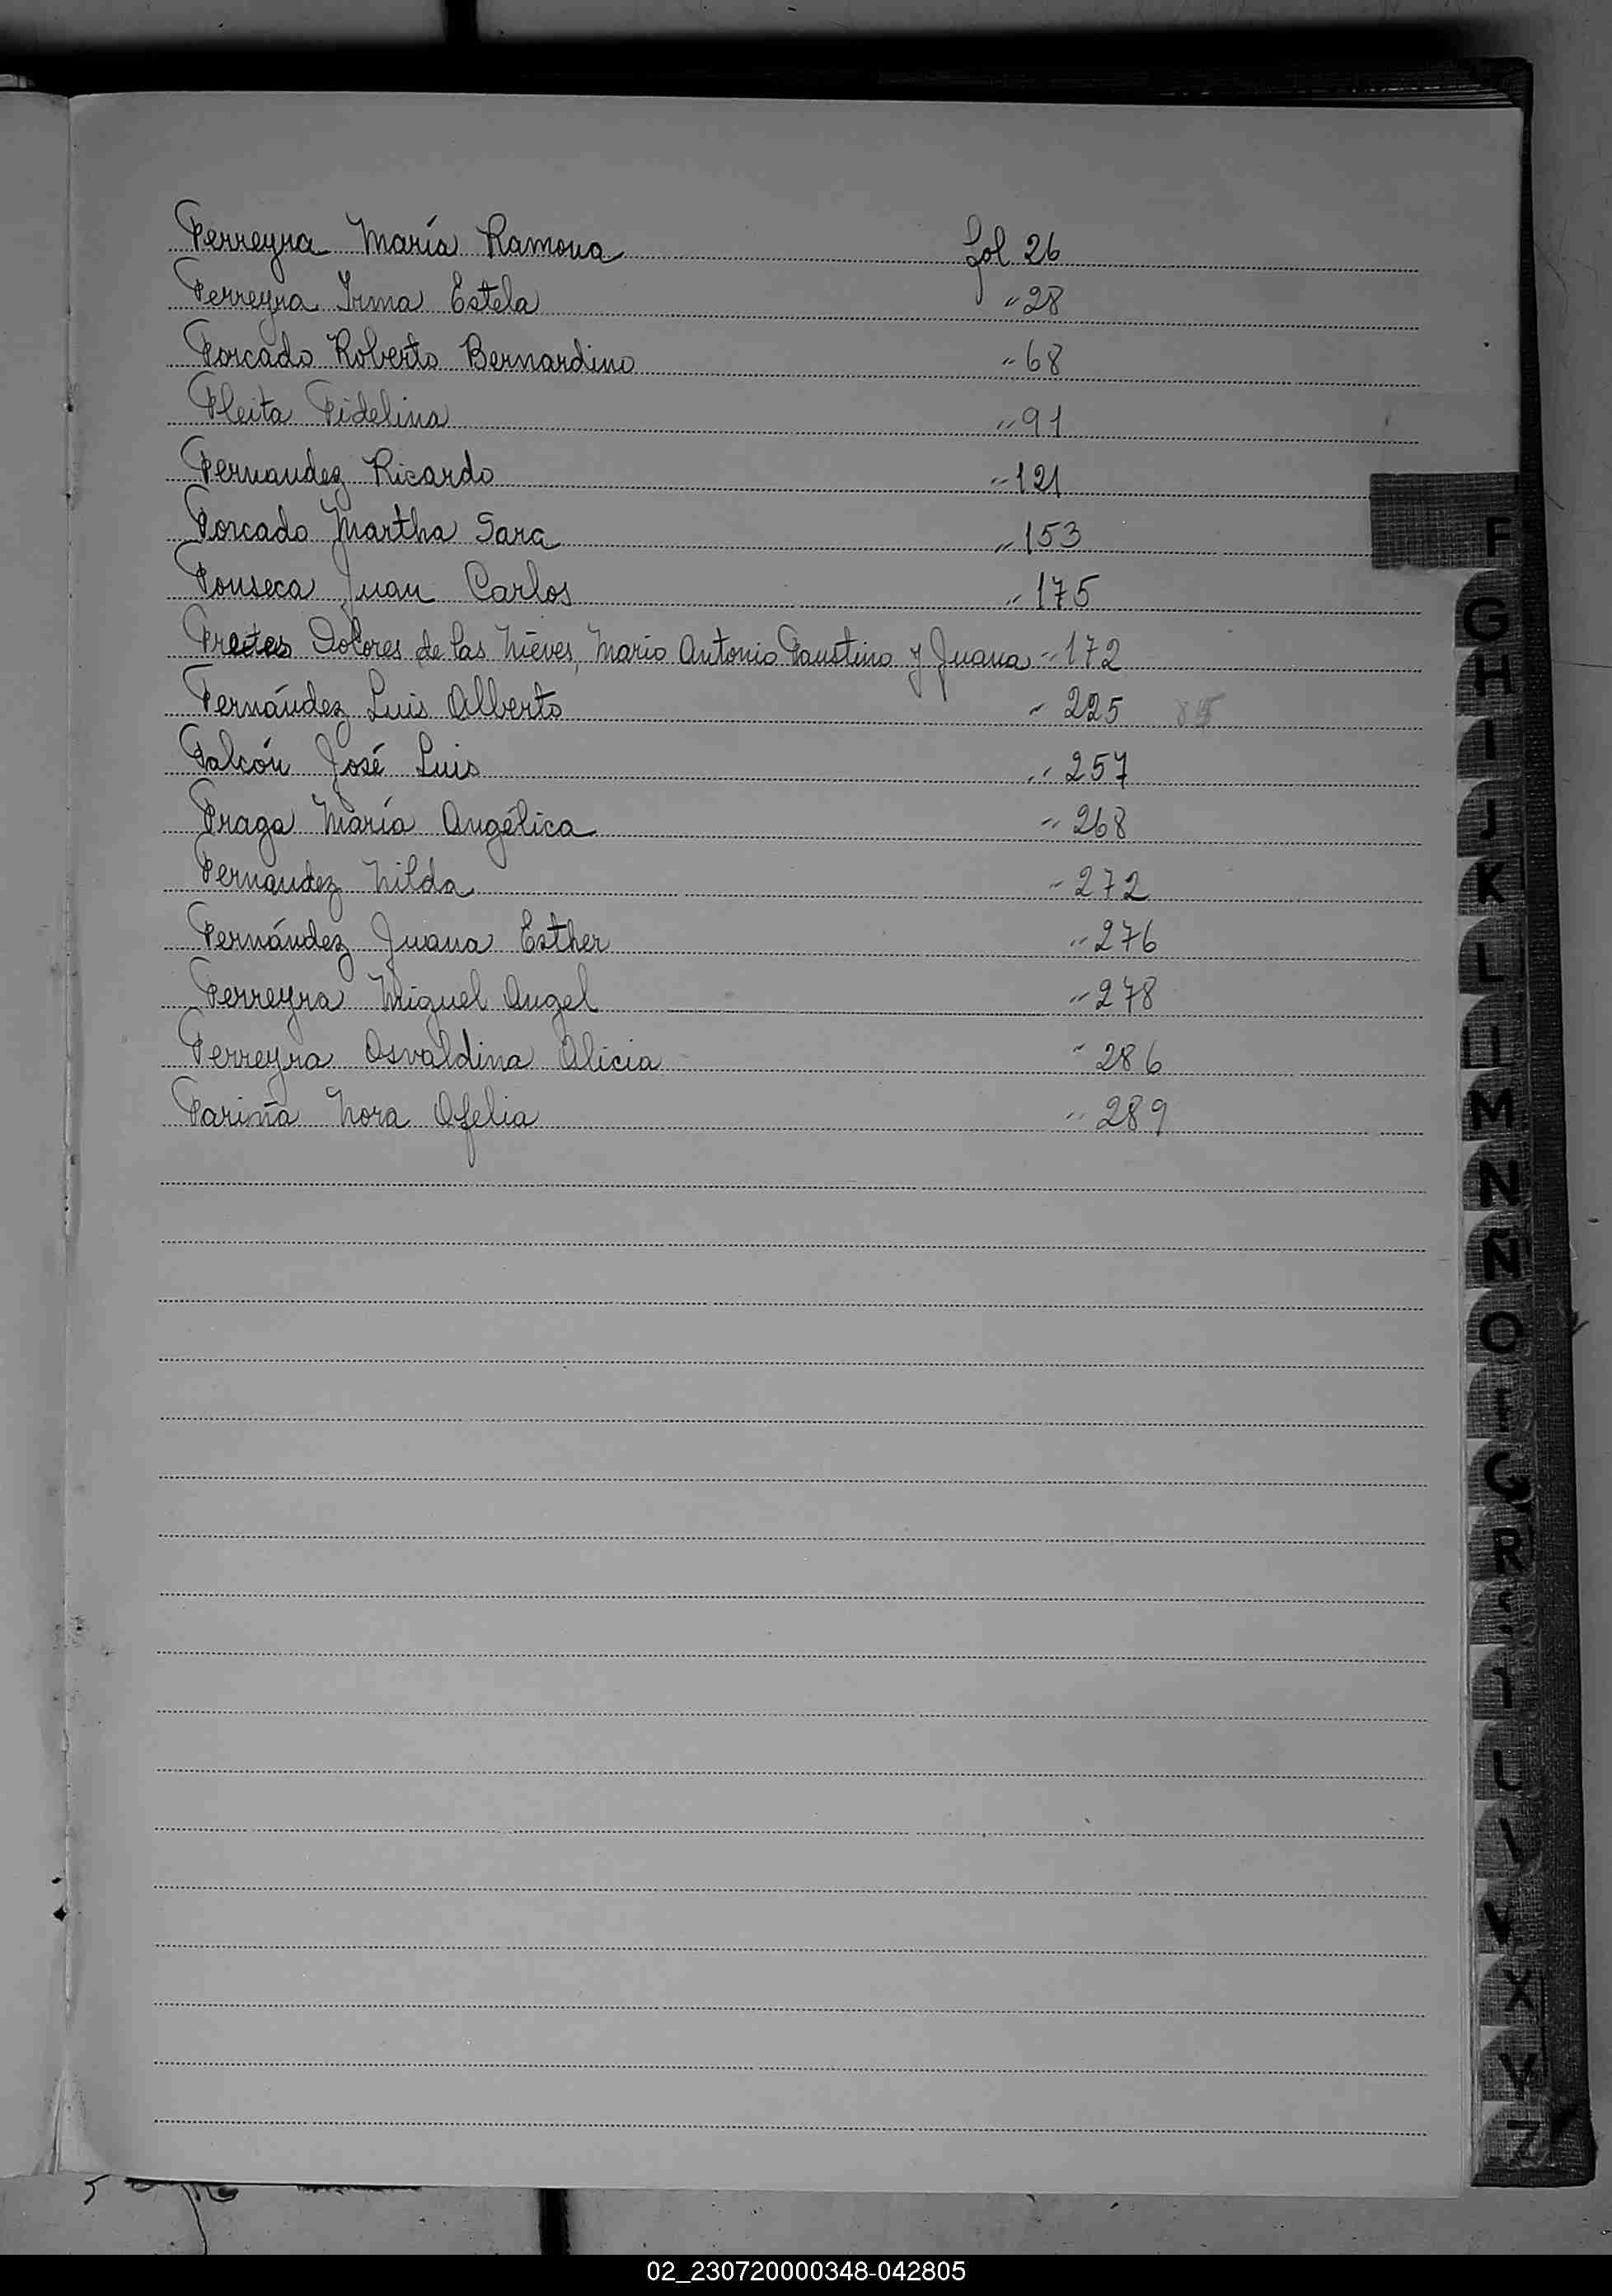 Ferreyra María Ramona fol 26
Ferreyra Irma Estela " 28
Forcado Roberto Bernardino " 68
Fleita Fidelina " 91
Fernandez Ricardo " 121
Forcado Martha Sara " 153
Fonseca Juan Carlos " 175
Freites Dolores de las Nieves, Mario Antonio Faustino y Juana " 172
Fernández Luis Alberto " 225
Falcón José Luis " 257
Fraga María Angélica " 268
Fernandez Nilda " 272
Fernández Juana Esther " 276
Ferreyra Miguel Angel " 278
Ferreyra Osvaldina Alicia " 286
Fariña Nora Ofelia " 289
F
G
H
I
J
K
L
M
N
Ñ
O
R
X
Z
02_230720000348-042805